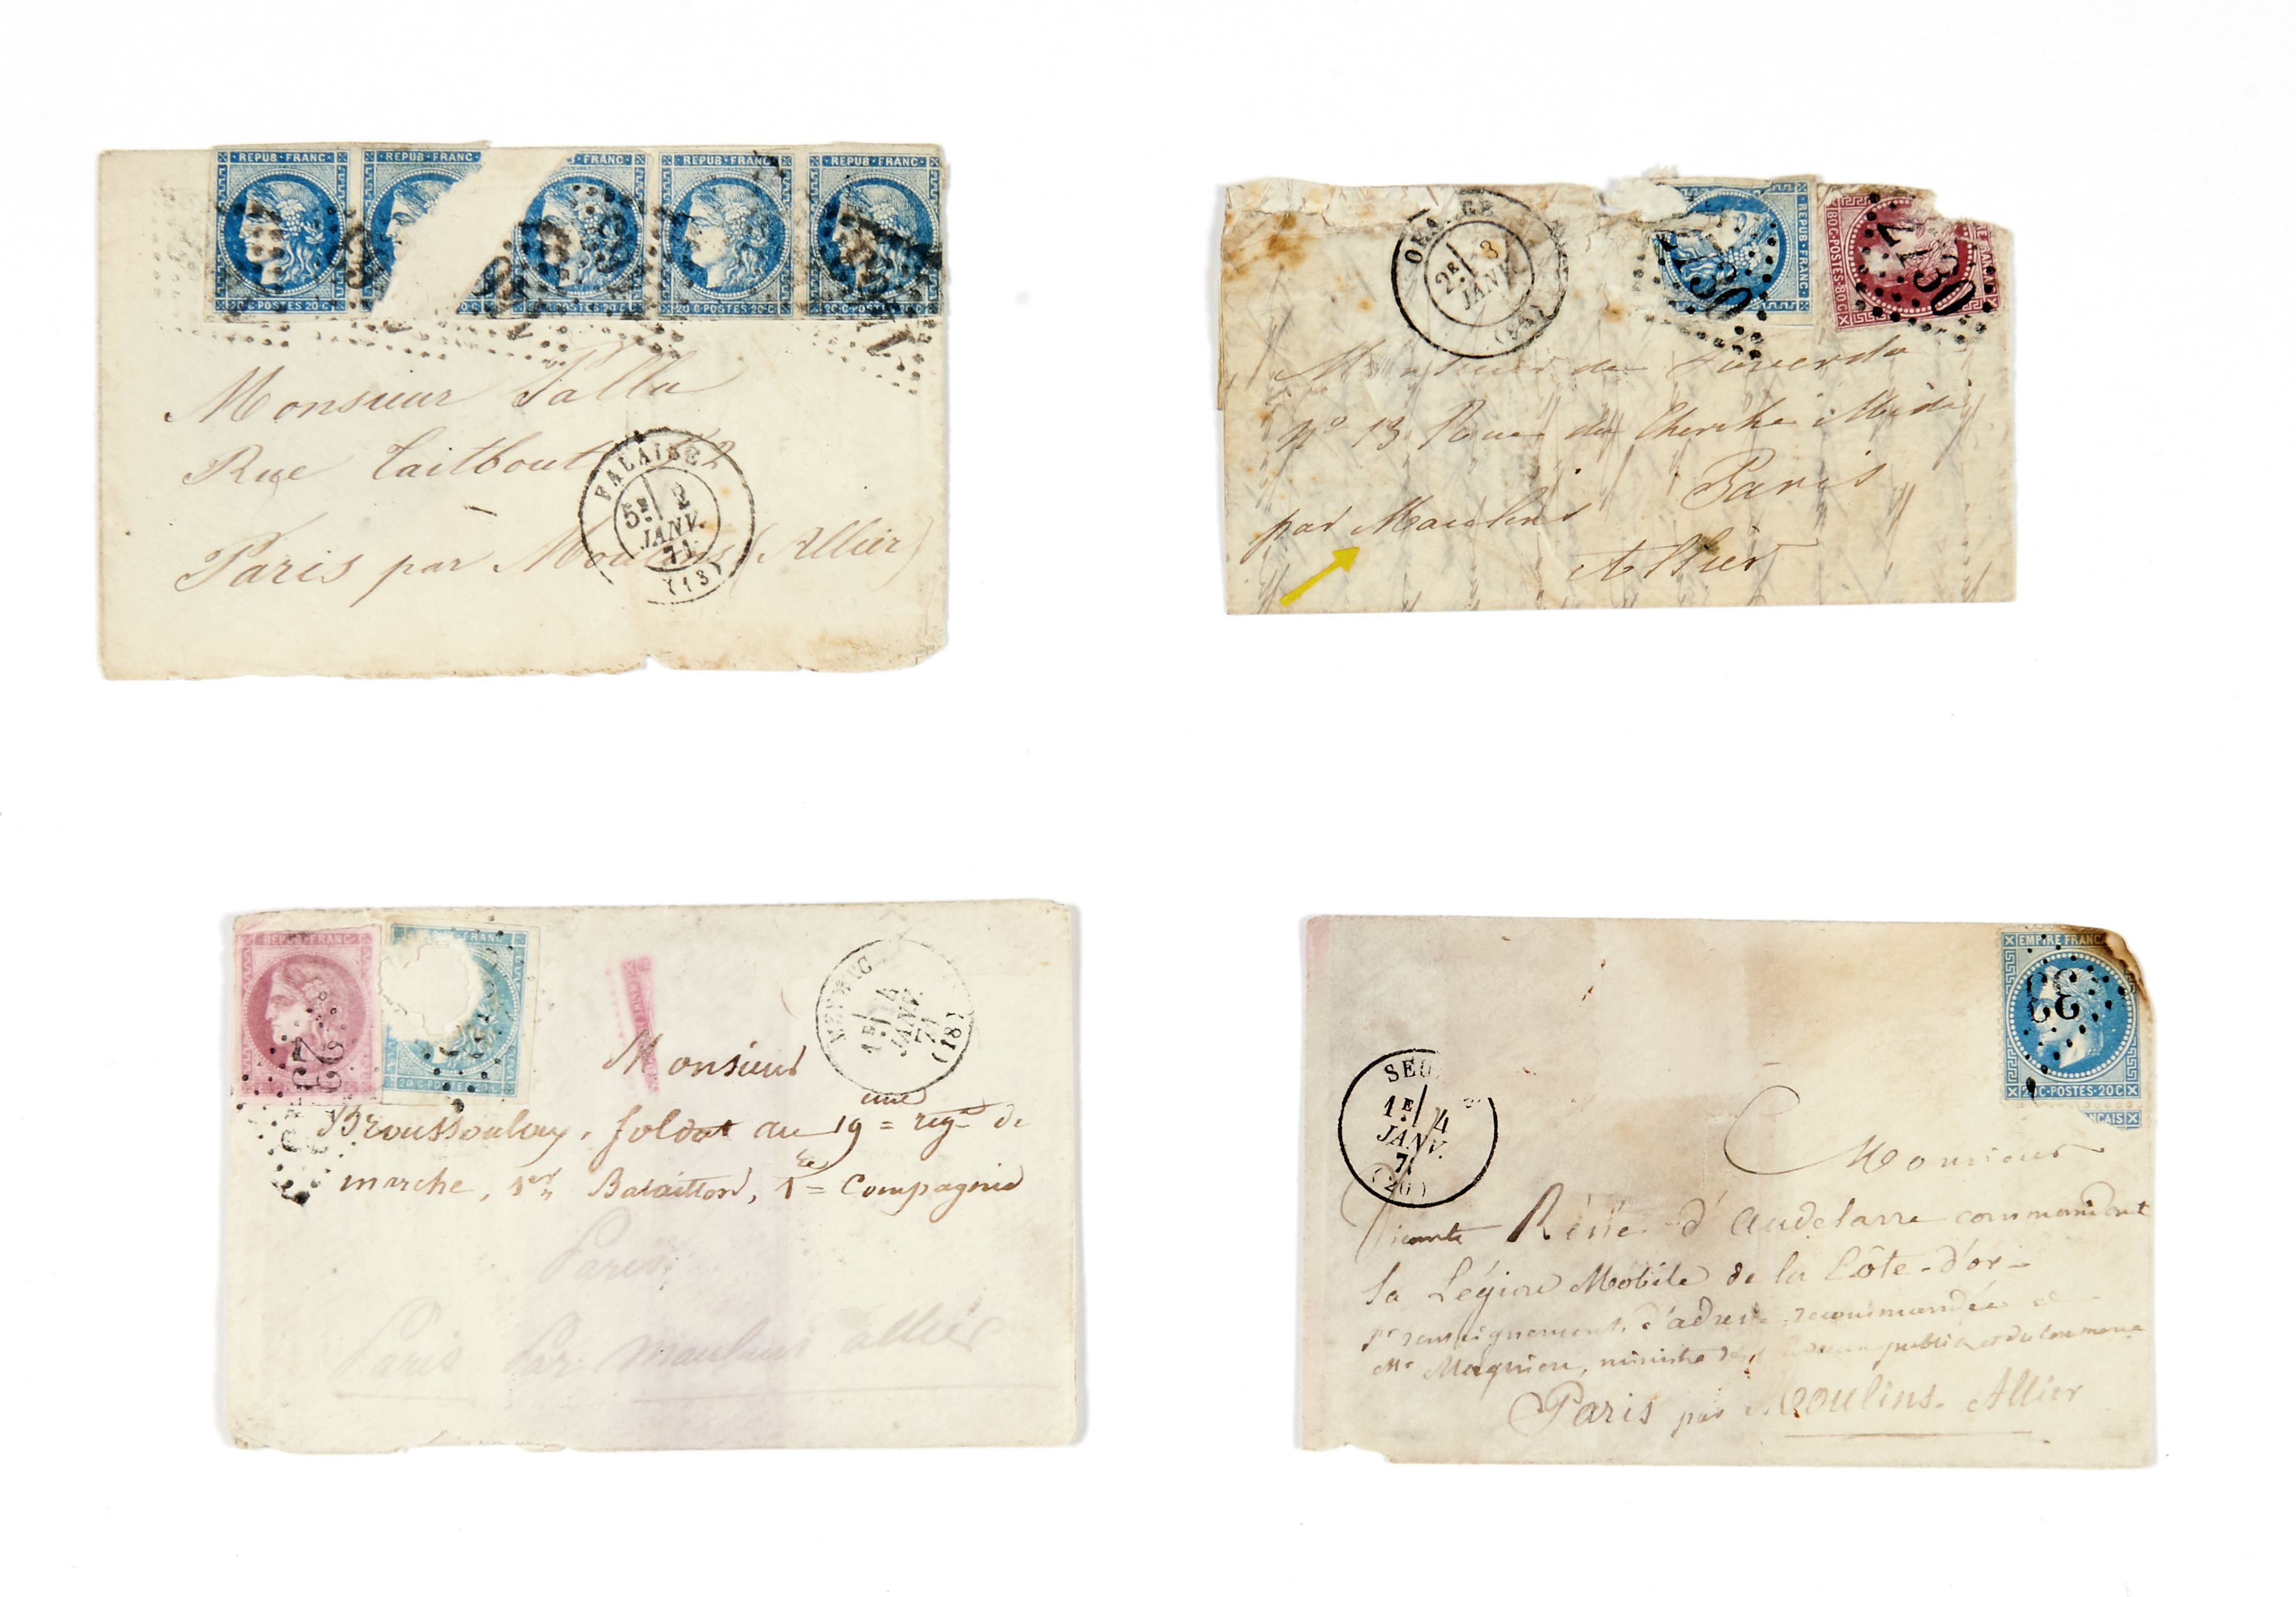 REPUB·FRANC·
20·C·POSTES·20·C
REPUB·FRANC
FRANC·
POSTES·20·C·
REPUB·FRANC
20·C·POSTES·20·C
REPUB·FRANC
20·C·POSTES·20·C
Monsieur Pallu
Rue Taitbout
FALAISE
5E 2
JANV.
71
(13)
Paris par Moulins (Allier)
2E 3
JANV.
REPUB·FRANC·
2730
80·C·POSTES·80·C
2730
Monsieur de
No 13 Rue du Cherche Midi
Paris
par Moulins
Allier
REPUB·FRANC
FRANC
20·C·POSTES·20·C
1E 4
JANV.
71
(18)
Monsieur
Broussouloux, soldat au 19 = regt de
marche, 1er Bataillon, 1 = Compagnie
Paris
Paris Par Moulins allier
EMPIRE FRANC
20·C·POSTES·20·C
NÇAIS
SEU
1E 4
JANV.
7
(20)
Monsieur
Vicomte Réné d'Audelarre commandant
la Légion Mobile de la Côte-d'or
renseignement. d'adresse recommandée
Mr Magnien, ministre
Paris par Moulins. Allier